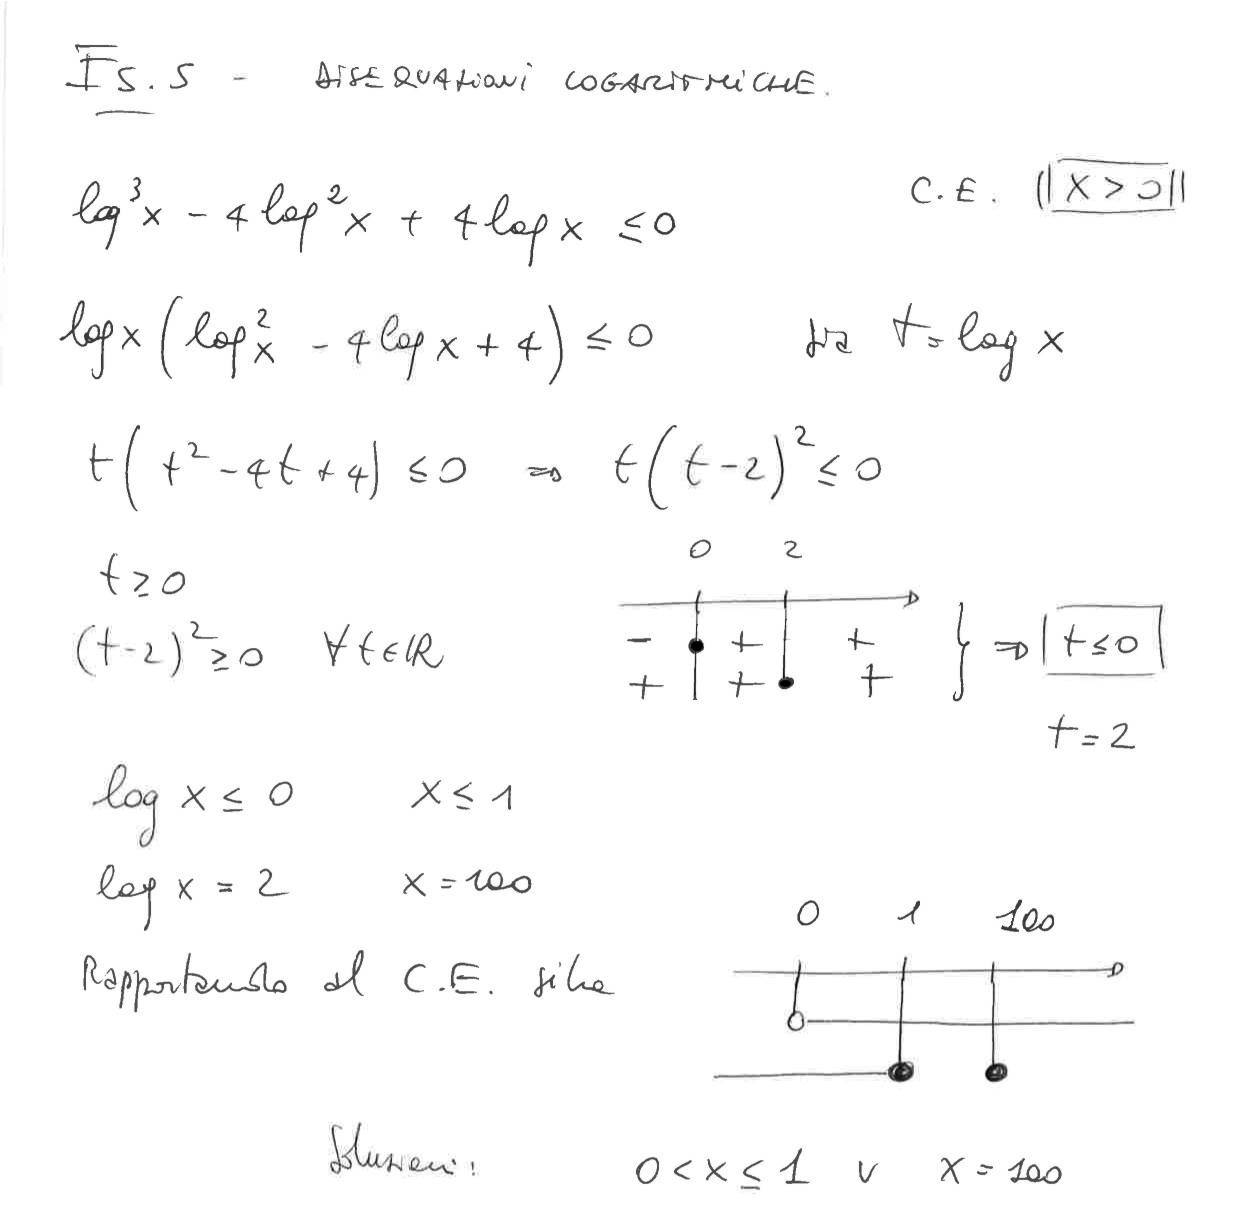 Es. 5 - DISEQUAZIONI LOGARITMICHE.
log³x - 4 log²x + 4 log x ≤ 0 C.E. x > 0
log x (log²x - 4 log x + 4) ≤ 0 sia t = log x
t(t² - 4t + 4) ≤ 0 ⇒ t(t-2)² ≤ 0
0 2
t ≥ 0
(t-2)² ≥ 0 ∀ t ∈ ℝ
- + +
+ + +
} ⇒ t ≤ 0
t = 2
log x ≤ 0 x ≤ 1
log x = 2 x = 100
0 1 100
Rapportando al C.E. si ha
Soluzioni: 0 < x ≤ 1 v x = 100